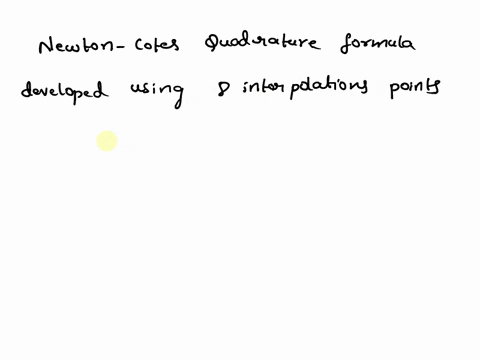 Newton-Cotes Quadrature formula
developed using 8 interpolations points